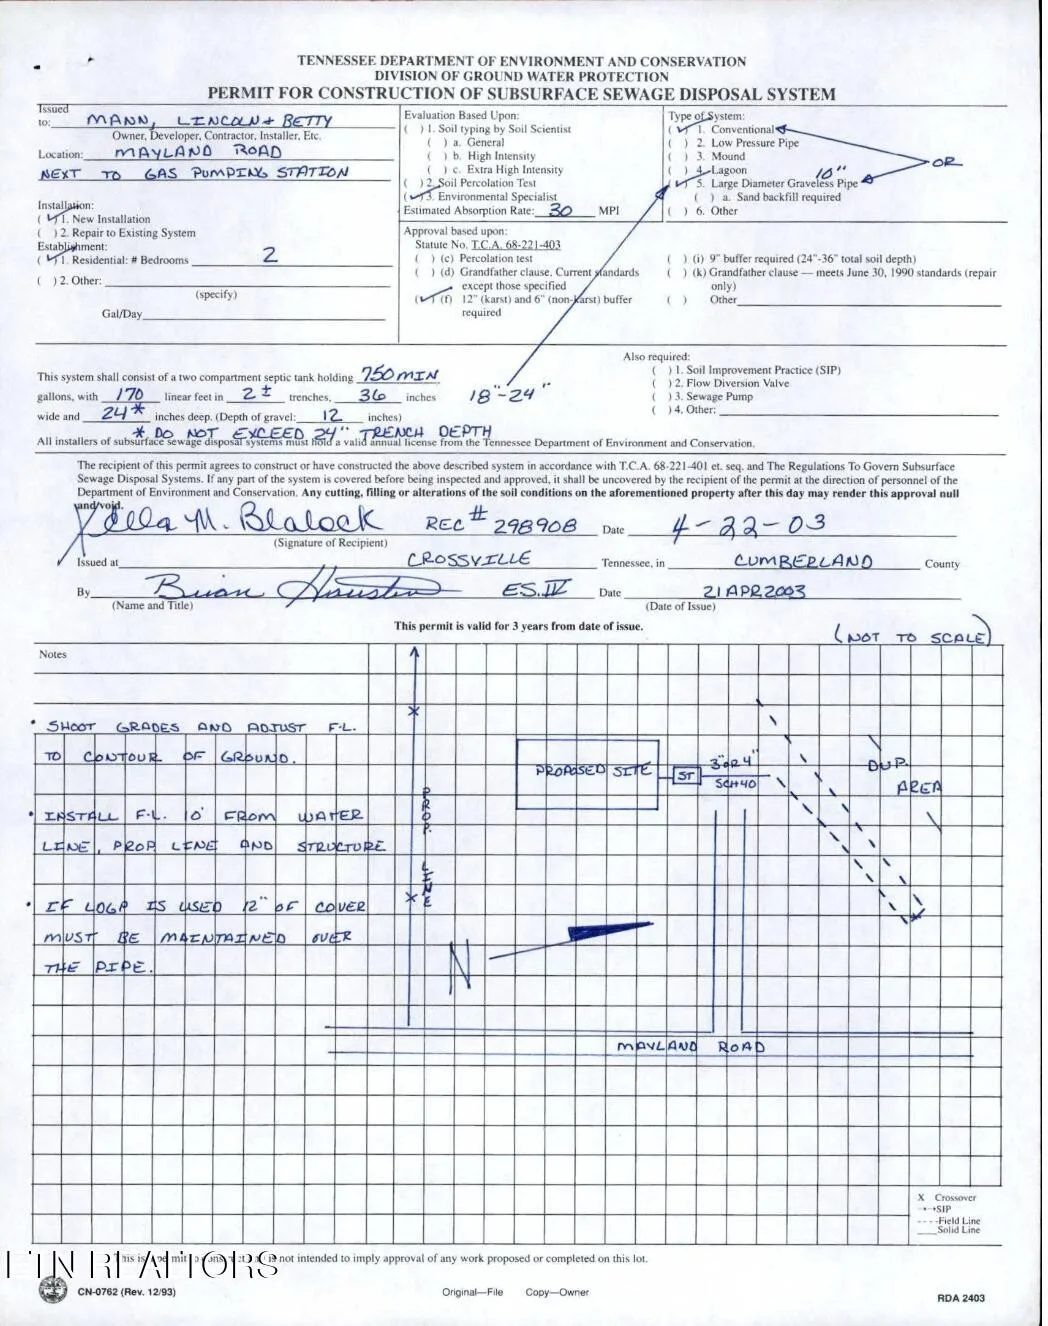 TENNESSEE DEPARTMENT OF ENVIRONMENT AND CONSERVATION
DIVISION OF GROUND WATER PROTECTION
PERMIT FOR CONSTRUCTION OF SUBSURFACE SEWAGE DISPOSAL SYSTEM
Issued
to: MANN, LINCOLN & BETTY
Owner, Developer, Contractor, Installer, Etc.
Location: MAYLAND ROAD
NEXT TO GAS PUMPING STATION
Installation:
(✓) 1. New Installation
( ) 2. Repair to Existing System
Establishment:
(✓) 1. Residential: # Bedrooms 2
( ) 2. Other:
(specify)
Gal/Day
Evaluation Based Upon:
( ) 1. Soil typing by Soil Scientist
( ) a. General
( ) b. High Intensity
( ) c. Extra High Intensity
( ) 2. Soil Percolation Test
(✓) 3. Environmental Specialist
Estimated Absorption Rate: 30 MPI
Type of System:
(✓) 1. Conventional
( ) 2. Low Pressure Pipe
( ) 3. Mound
( ) 4. Lagoon 10"
(✓) 5. Large Diameter Graveless Pipe
OR
( ) a. Sand backfill required
( ) 6. Other
Approval based upon:
Statute No. T.C.A. 68-221-403
( ) (c) Percolation test
( ) (d) Grandfather clause, Current standards
except those specified
(✓) (f) 12" (karst) and 6" (non-karst) buffer
required
( ) (i) 9" buffer required (24"-36" total soil depth)
( ) (k) Grandfather clause — meets June 30, 1990 standards (repair
only)
( ) Other
This system shall consist of a two compartment septic tank holding 750 MIN
gallons, with 170 linear feet in 2± trenches, 36 inches
wide and 24* inches deep. (Depth of gravel: 12 inches)
18"-24"
* DO NOT EXCEED 24" TRENCH DEPTH
Also required:
( ) 1. Soil Improvement Practice (SIP)
( ) 2. Flow Diversion Valve
( ) 3. Sewage Pump
( ) 4. Other:
All installers of subsurface sewage disposal systems must hold a valid annual license from the Tennessee Department of Environment and Conservation.
The recipient of this permit agrees to construct or have constructed the above described system in accordance with T.C.A. 68-221-401 et. seq. and The Regulations To Govern Subsurface
Sewage Disposal Systems. If any part of the system is covered before being inspected and approved, it shall be uncovered by the recipient of the permit at the direction of personnel of the
Department of Environment and Conservation. Any cutting, filling or alterations of the soil conditions on the aforementioned property after this day may render this approval null
and/void.
X Ella M. Blalock REC# 298908 Date 4-22-03
(Signature of Recipient)
Issued at CROSSVILLE Tennessee, in CUMBERLAND County
By Brian Houston ES.IV Date 21APR2003
(Name and Title) (Date of Issue)
This permit is valid for 3 years from date of issue.
(NOT TO SCALE)
Notes
• SHOOT GRADES AND ADJUST F.L.
TO CONTOUR OF GROUND.
• INSTALL F.L. 10' FROM WATER
LINE, PROP LINE AND STRUCTURE
• IF LDGP IS USED 12" OF COVER
MUST BE MAINTAINED OVER
THE PIPE.
PROP. LINE
PROPOSED SITE
ST
3" OR 4"
SCH40
DUP.
AREA
N
MAYLAND ROAD
X Crossover
SIP
Field Line
Solid Line
This is a permit to construct and is not intended to imply approval of any work proposed or completed on this lot.
ETN REALTORS
CN-0762 (Rev. 12/93)
Original—File Copy—Owner
RDA 2403